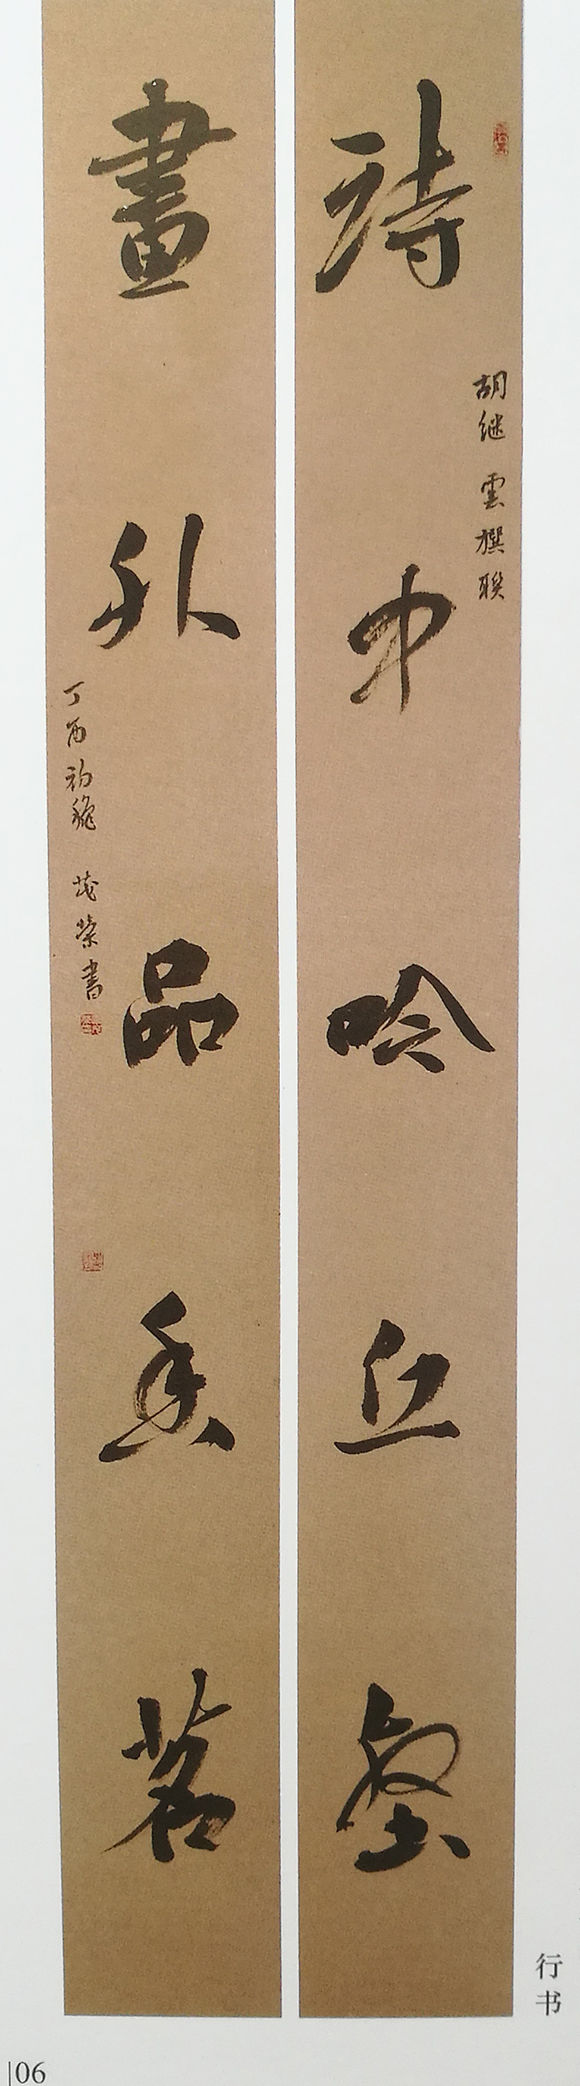 詩中吟丘壑
胡继雲撰联
畫外品香茗
丁酉初秋 茂荣書
行书
|06